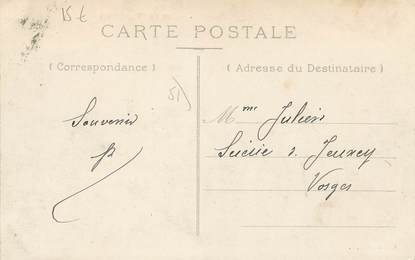 15€
CARTE POSTALE
( Correspondance )
( Adresse du Destinataire )
51)
Souvenir
Mme Julien
Scierie
Jeuxey
Vosges